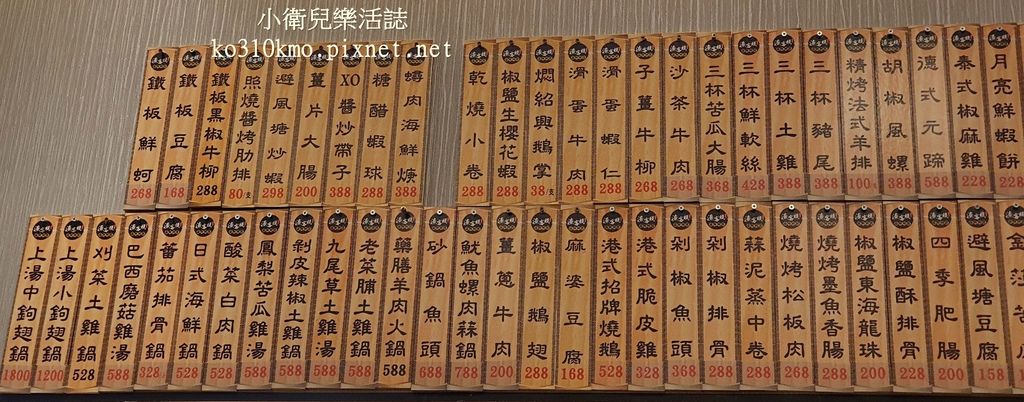 小衛兒樂活誌
ko310kmo.pixnet.net
鐵板鮮蚵 268
鐵板豆腐 168
鐵板黑椒牛柳 288
照燒醬烤肋排 80/支
避風塘炒蝦 298
薑片大腸 200
XO醬炒帶子 388
糖醋蝦球 288
蟳肉海鮮煲 388
乾燒小卷 288
椒鹽生櫻花蝦 288
燜紹興鵝掌 38/支
滑蛋牛肉 288
滑蛋蝦仁 288
子薑牛柳 268
沙茶牛肉 268
三杯苦瓜大腸 368
三杯鮮軟絲 428
三杯土雞 388
三杯豬尾 388
精烤法式羊排 100/支
胡椒風螺 388
德式元蹄 588
泰式椒麻雞 228
月亮鮮蝦餅 228
上湯中鉤翅鍋 1800
上湯小鉤翅鍋 1200
刈菜土雞鍋 528
巴西蘑菇雞湯 588
蕃茄排骨鍋 328
日式海鮮鍋 528
酸菜白肉鍋 528
鳳梨苦瓜雞湯 588
剝皮辣椒土雞鍋 588
九尾草土雞鍋 588
老菜脯土雞鍋 588
藥膳羊肉火鍋 588
砂鍋魚頭 688
魷魚螺肉蒜鍋 788
薑蔥牛肉 200
椒鹽鵝翅 288
麻婆豆腐 168
港式招牌燒鵝 528
港式脆皮雞 328
剁椒魚頭 368
剁椒排骨 288
蒜泥蒸中卷 288
燒烤松板肉 268
燒烤墨魚香腸 288
椒鹽東海龍珠 200
椒鹽酥排骨 228
四季肥腸 200
避風塘豆腐 158